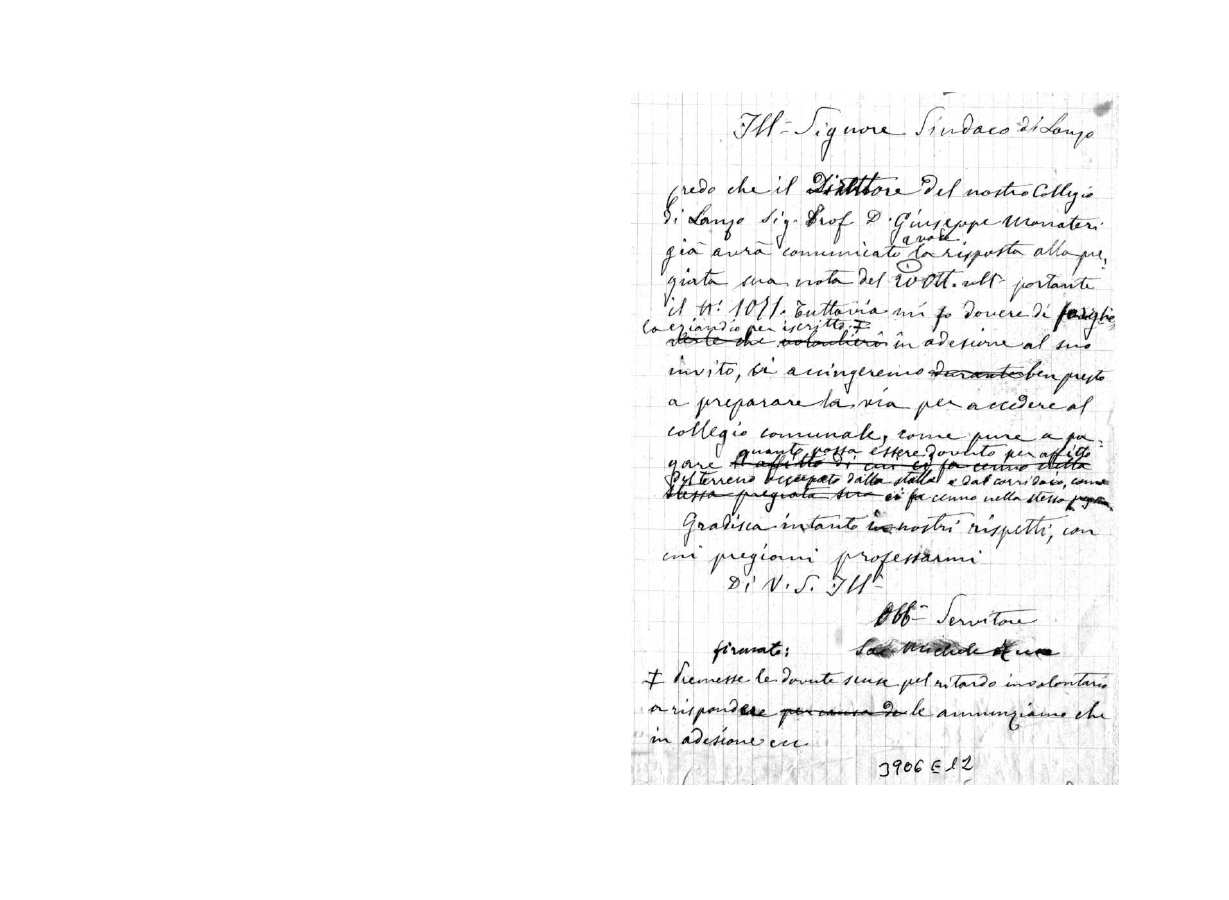 Ill- Signore Sindaco di Lanzo
Credo che il Direttore del nostro Collegio
di Lanzo Sig. Prof D. Giuseppe Monateri
già avrà comunicato la risposta alla pre,
giata sua nota del 20 Ott. ult- portante
il N: 1071. Tuttavia mi fo dovere di
eziandio per iscritto ‡
che volontieri in adesione al suo
invito, ci accingeremo durante ben presto
a preparare la via per accedere al
collegio comunale, come pure a pa,
quanto possa essere dovuto per affitto
gare l'affitto di cui ci fa cenno nella
terreno occupato dalla stalla e dal corridoio, come
stessa pregiata sua ci fa cenno nella stessa
Gradisca intanto i nostri rispetti, con
cui pregiomi professarmi
Di V. S. Ill-
Obb- Servitore
firmato: Sac Michele Rua
‡ Premesse le dovute scuse pel ritardo involontario
a rispondere per causa di le annunziamo che
in adesione ecc
3906 E 12